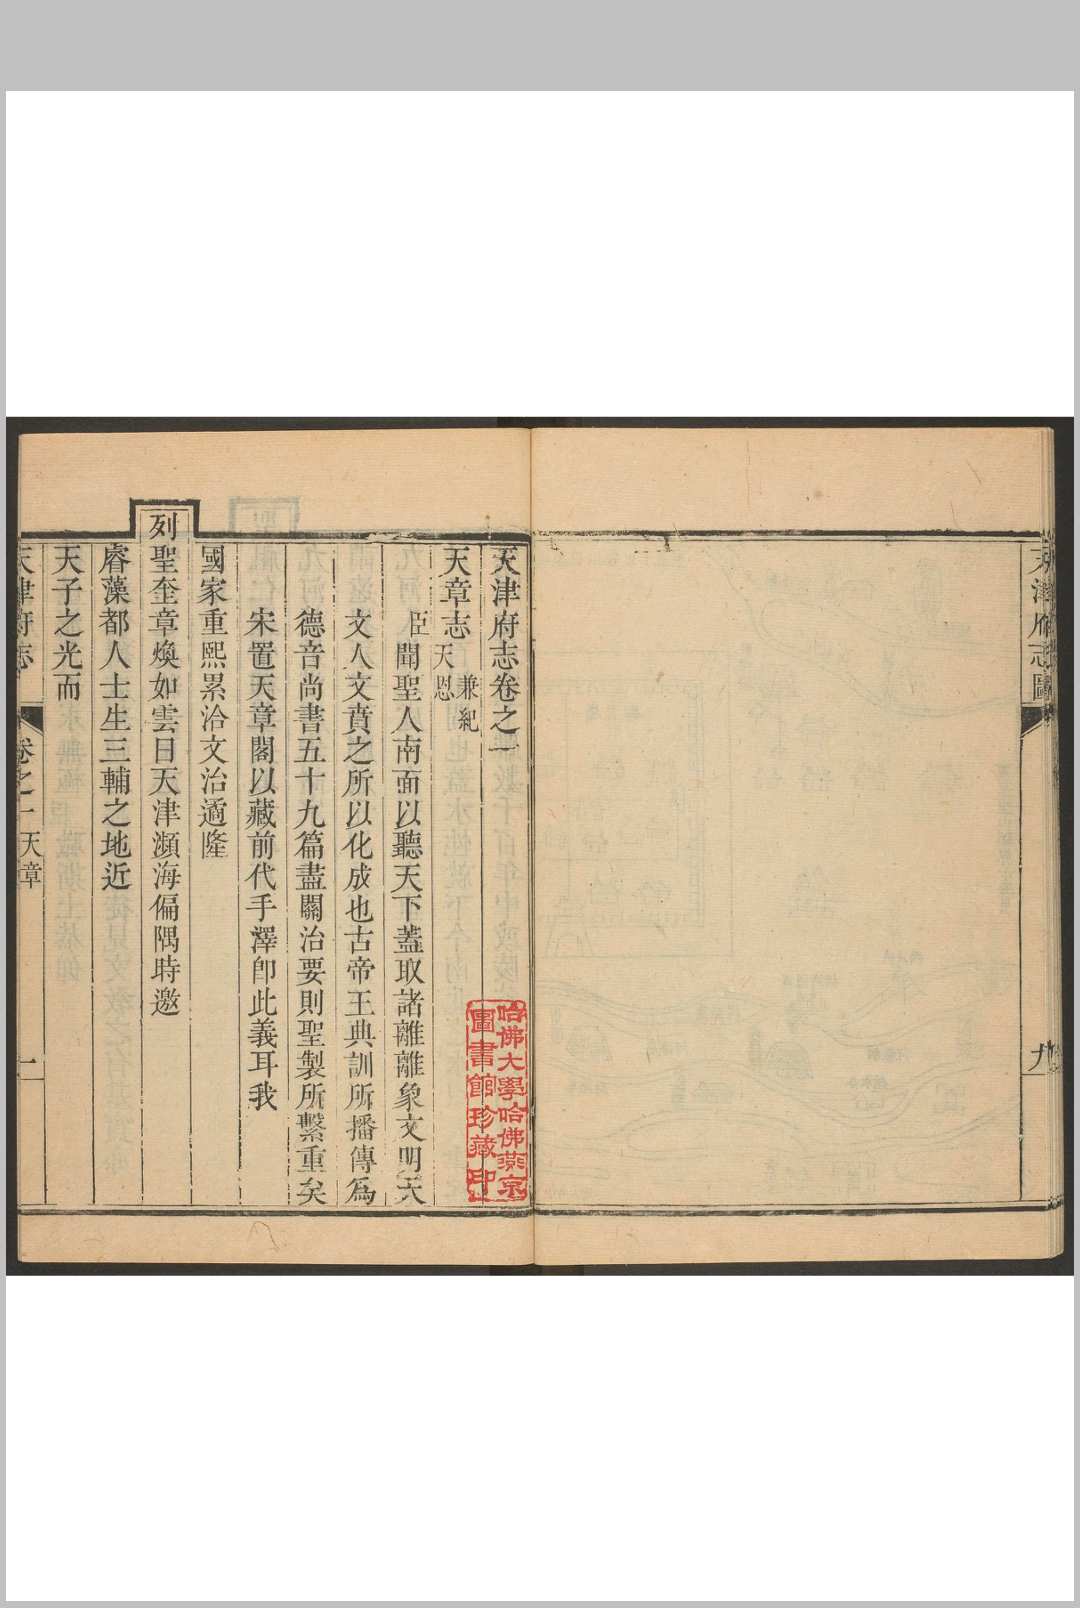 天津府志圖
九
天津府志卷之一
天章志 兼紀天恩
臣聞聖人南面以聽天下蓋取諸離離象文明天
文人文賁之所以化成也古帝王典訓所播傳爲
德音尚書五十九篇盡關治要則聖製所繫重矣
宋置天章閣以藏前代手澤卽此義耳我
國家重熙累洽文治遹隆
列聖奎章煥如雲日天津瀕海偏隅時邀
睿藻都人士生三輔之地近
天子之光而
天津府志
卷之一天章
一
哈佛大學哈佛燕京
圖書館珍藏印